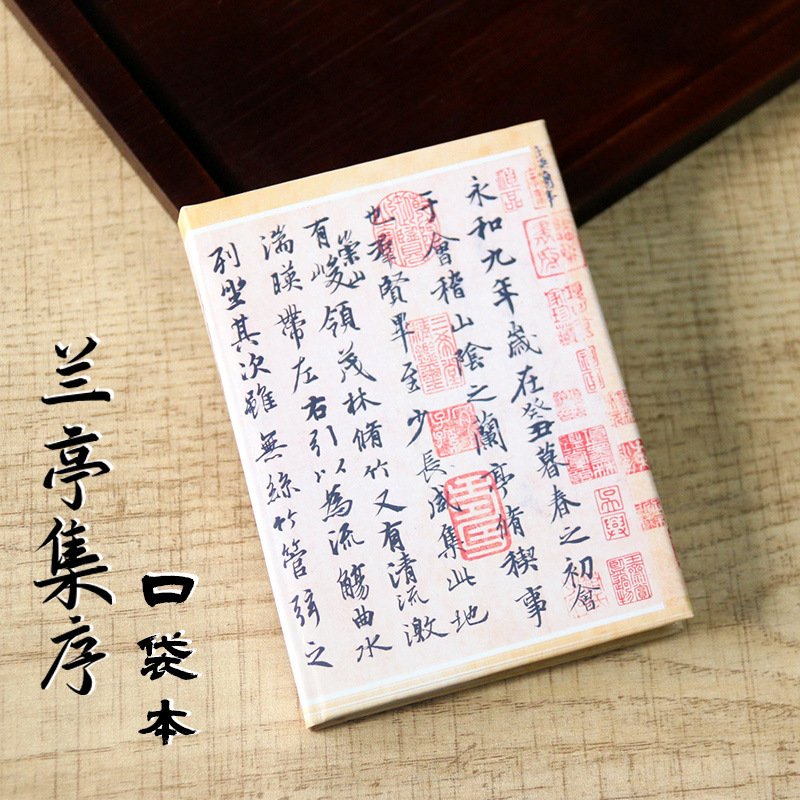 兰亭集序
口袋本
永和九年歲在癸丑暮春之初會
于會稽山陰之蘭亭脩稧事
也羣賢畢至少長咸集此地
有崇山峻領茂林脩竹又有清流激
湍暎帶左右引以為流觴曲水
列坐其次雖無絲竹管弦之